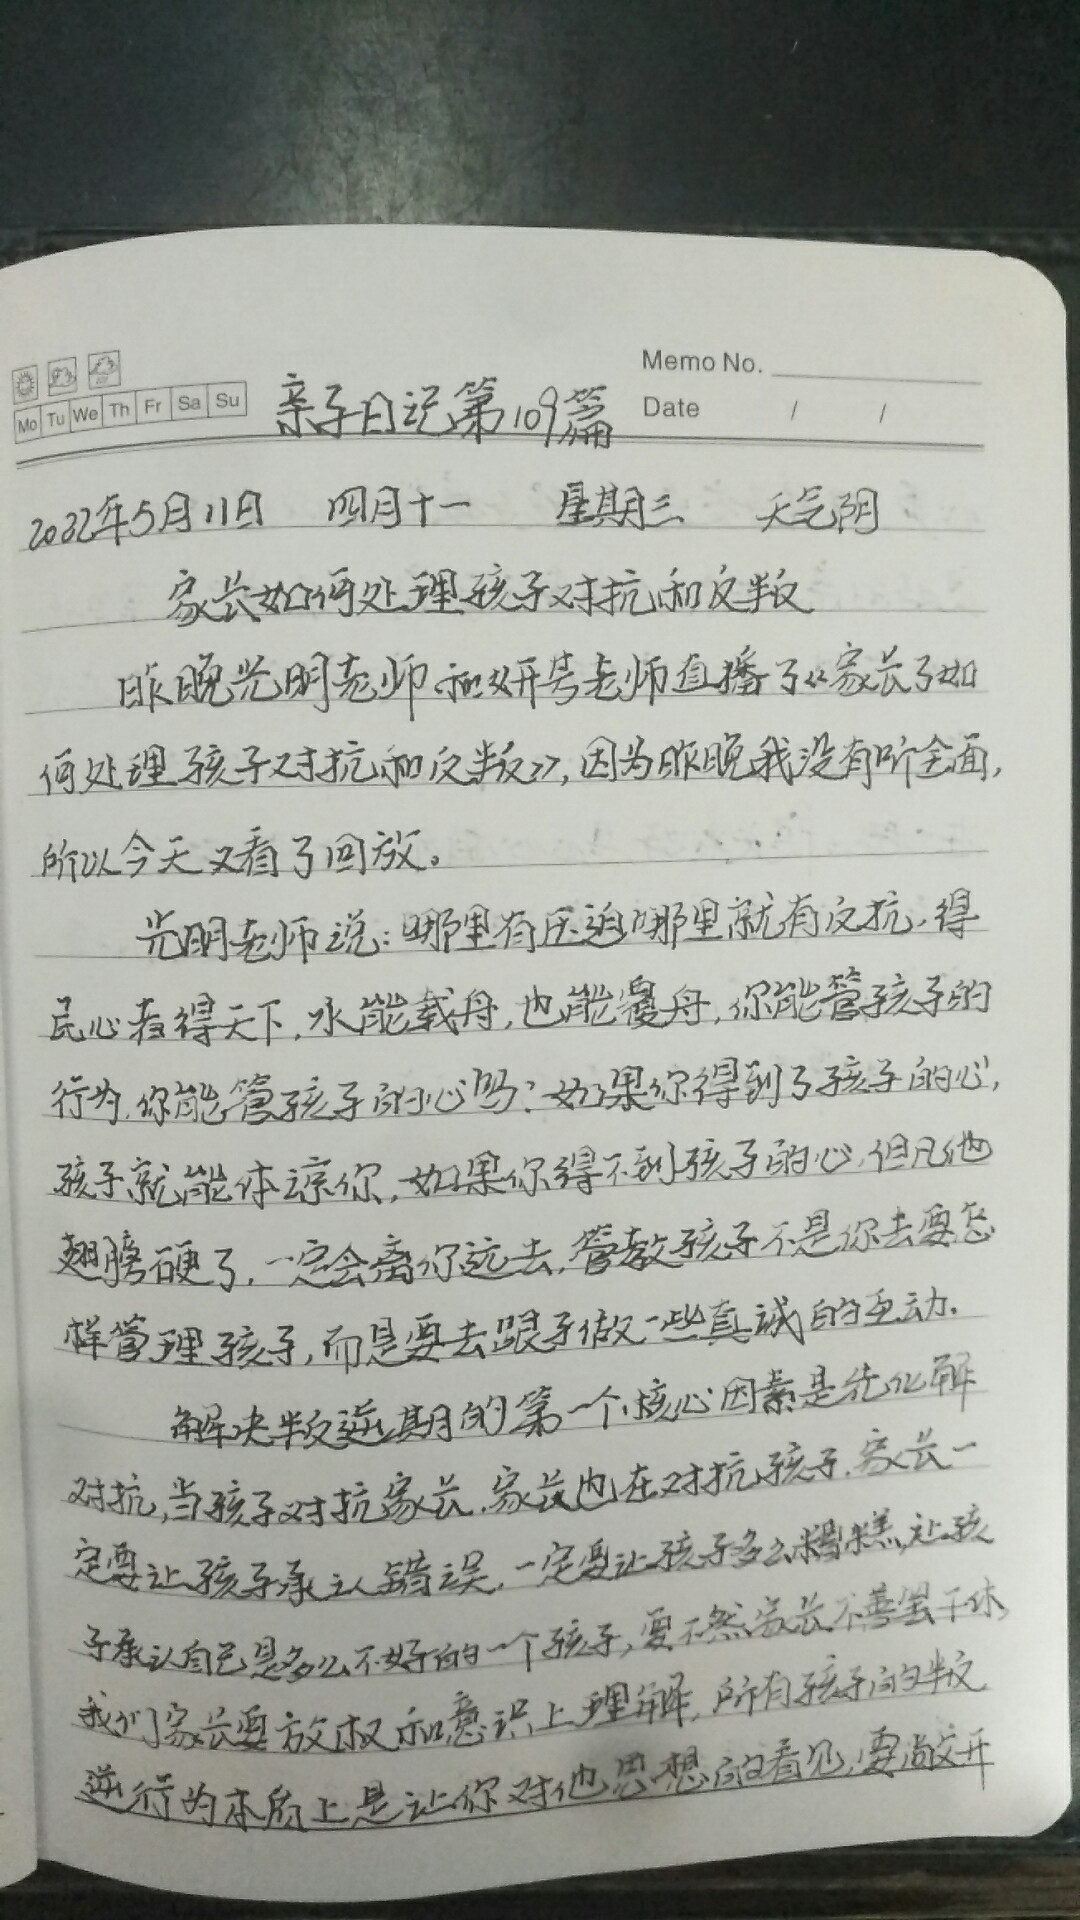 Memo No.
Mo Tu We Th Fr Sa Su
亲子日记第109篇
Date / /
2022年5月11日 四月十一 星期三 天气阴
家长如何处理孩子对抗和反叛
昨晚光明老师和妍兮老师直播了《家长了如
何处理孩子对抗和反叛》,因为昨晚我没有听全面,
所以今天又看了回放。
光明老师说:哪里有压迫哪里就有反抗,得
民心者得天下,水能载舟,也能覆舟,你能管孩子的
行为,你能管孩子的心吗?如果你得到了孩子的心,
孩子就能体谅你,如果你得不到孩子的心,但凡他
翅膀硬了,一定会离你远去,管教孩子不是你去要怎
样管理孩子,而是要去跟子做一些真诚的互动.
解决叛逆期的第一个核心因素是先化解
对抗,当孩子对抗家长,家长也在对抗孩子,家长一
定要让孩子承认错误,一定要让孩子多么糟糕,让孩
子承认自己是多么不好的一个孩子,要不然家长不善罢干休,
我们家长要放权和意识上理解,所有孩子的叛
逆行为本质上是让你对他思想的看见,要敞开